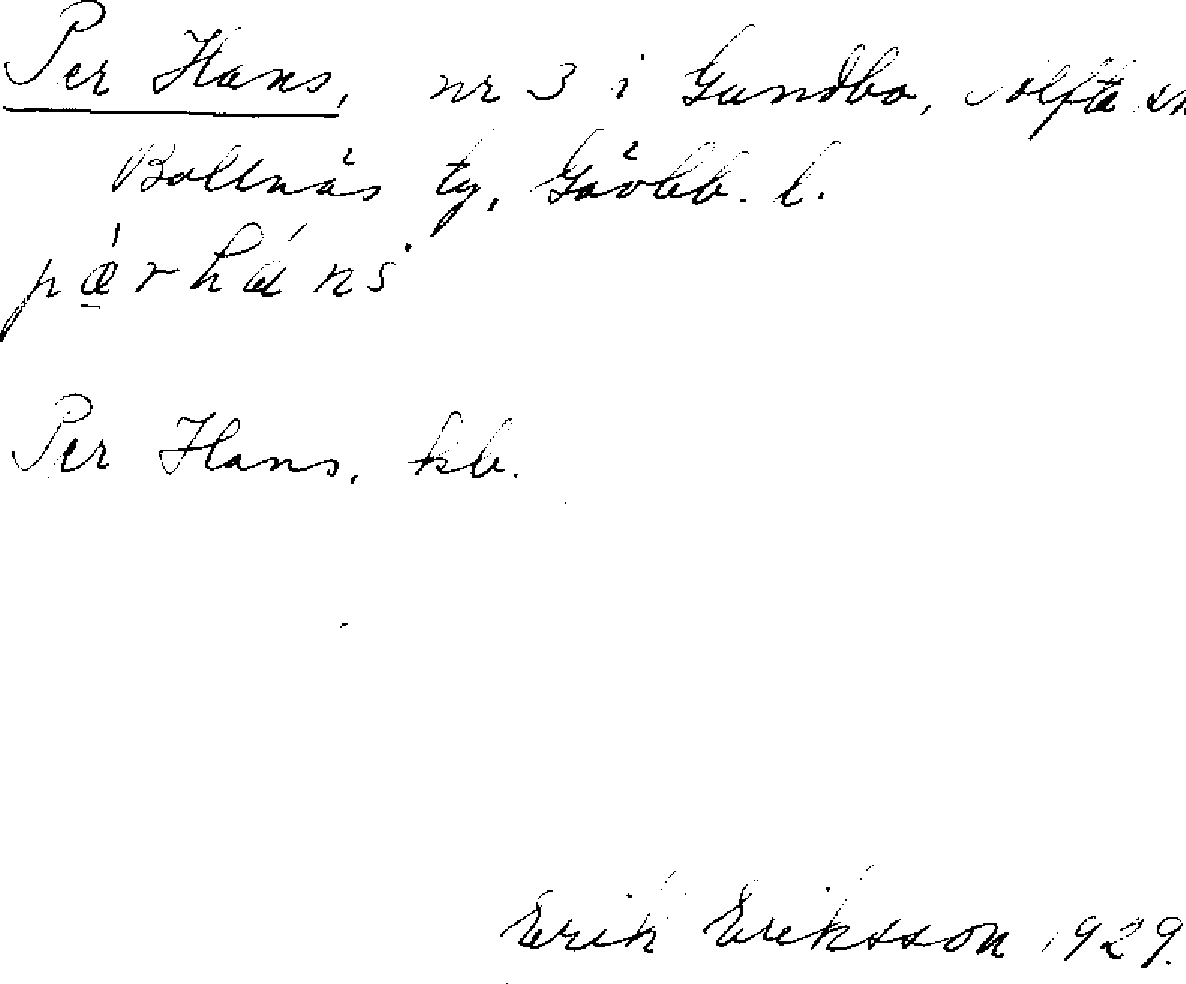 Per Hans, nr 3 i Gundbo, Alfta sn
Bollnäs tg, Gävleb. l.
pǽrháns
Per Hans, kb.
Erik Eriksson 1929.